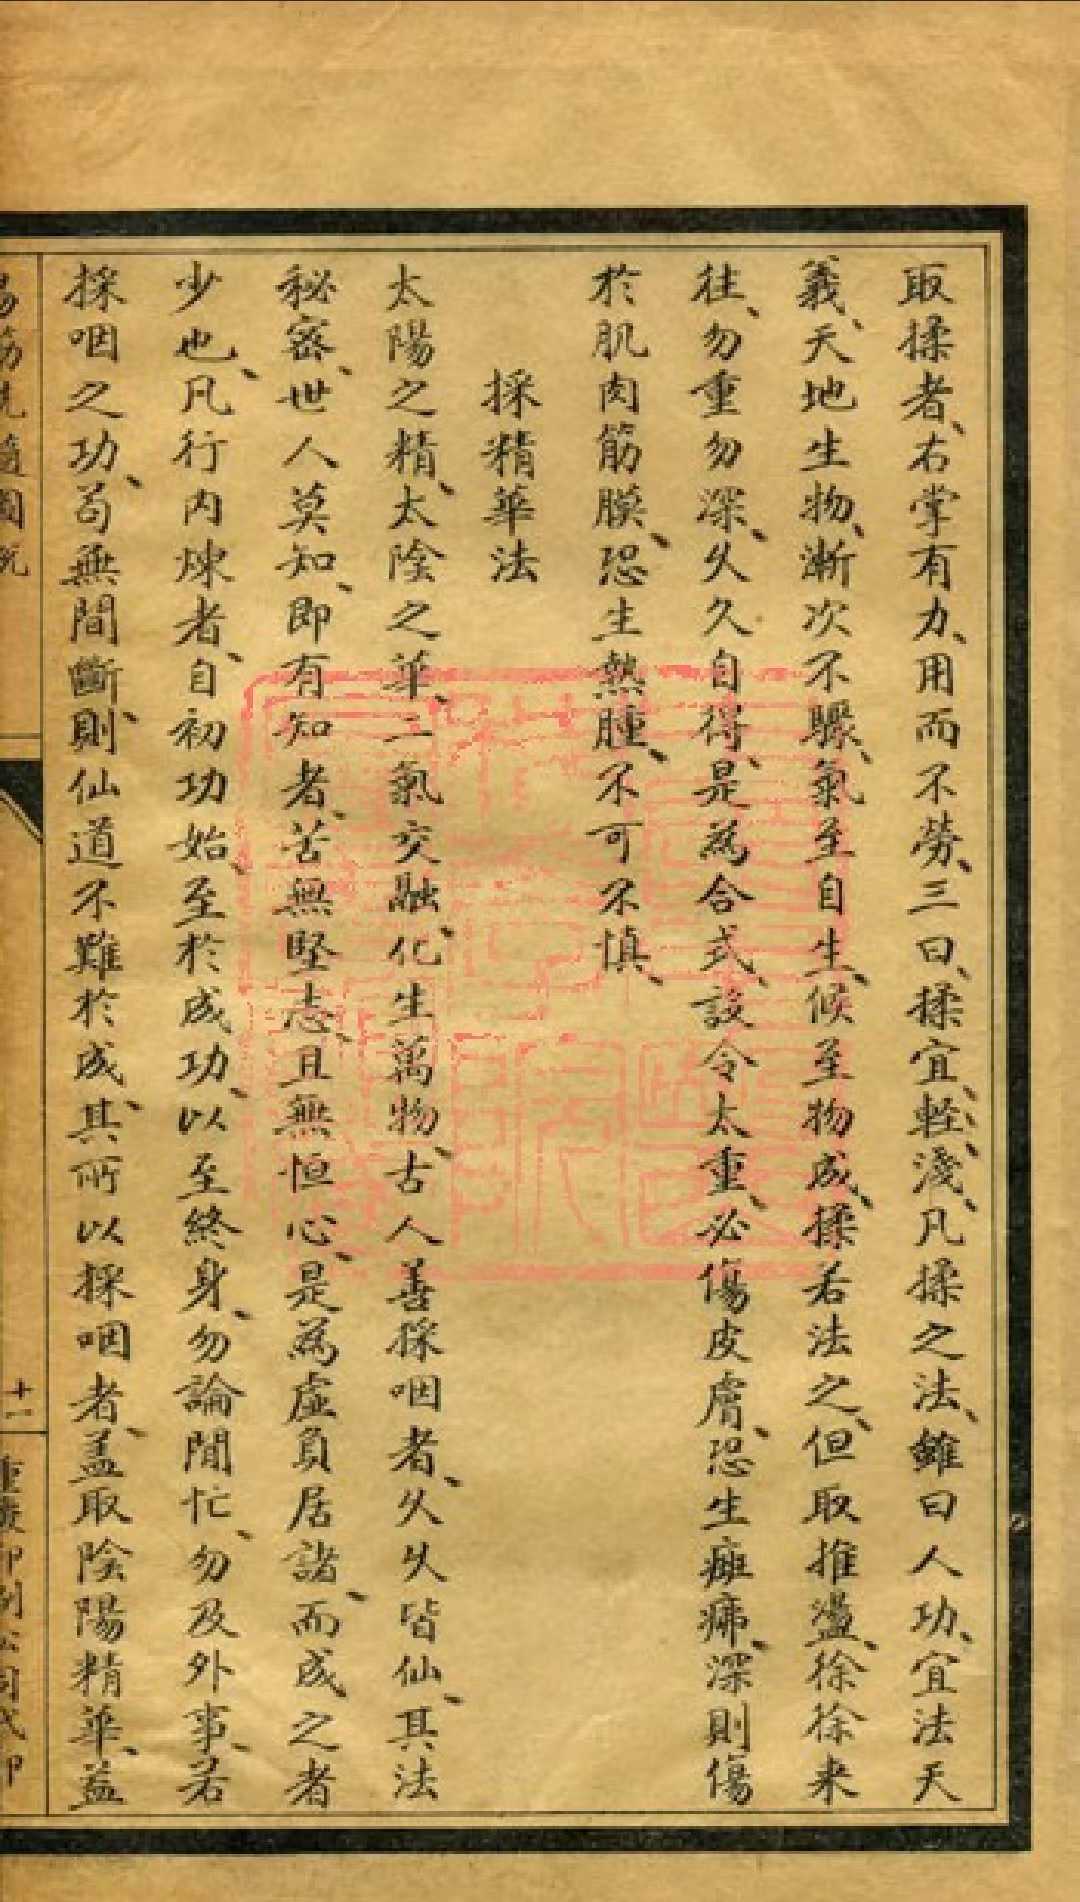 取揉者、右掌有力、用而不勞、三曰、揉宜、輕、淺、凡揉之法、雖曰人功、宜法天
義、天地生物、漸次不驟、氣至自生、候至物成、揉若法之、但取推盪、徐徐来
往、勿重勿深、久久自得、是為合式、設令太重、必傷皮膚、恐生瘢痱、深則傷
於肌肉筋膜、恐生熱腫、不可不慎、
採精華法
太陽之精、太陰之華、二氣交融、化生萬物、古人善採咽者、久久皆仙、其法
秘密、世人莫知、即有知者、苦無堅志、且無恒心、是為虛負居諸、而成之者
少也、凡行內煉者、自初功始、至於成功、以至終身、勿論閒忙、勿及外事、若
採咽之功、苟無間斷、則仙道不難於成、其所以採咽者、盖取陰陽精華、益
易筋洗髓圖說
十一